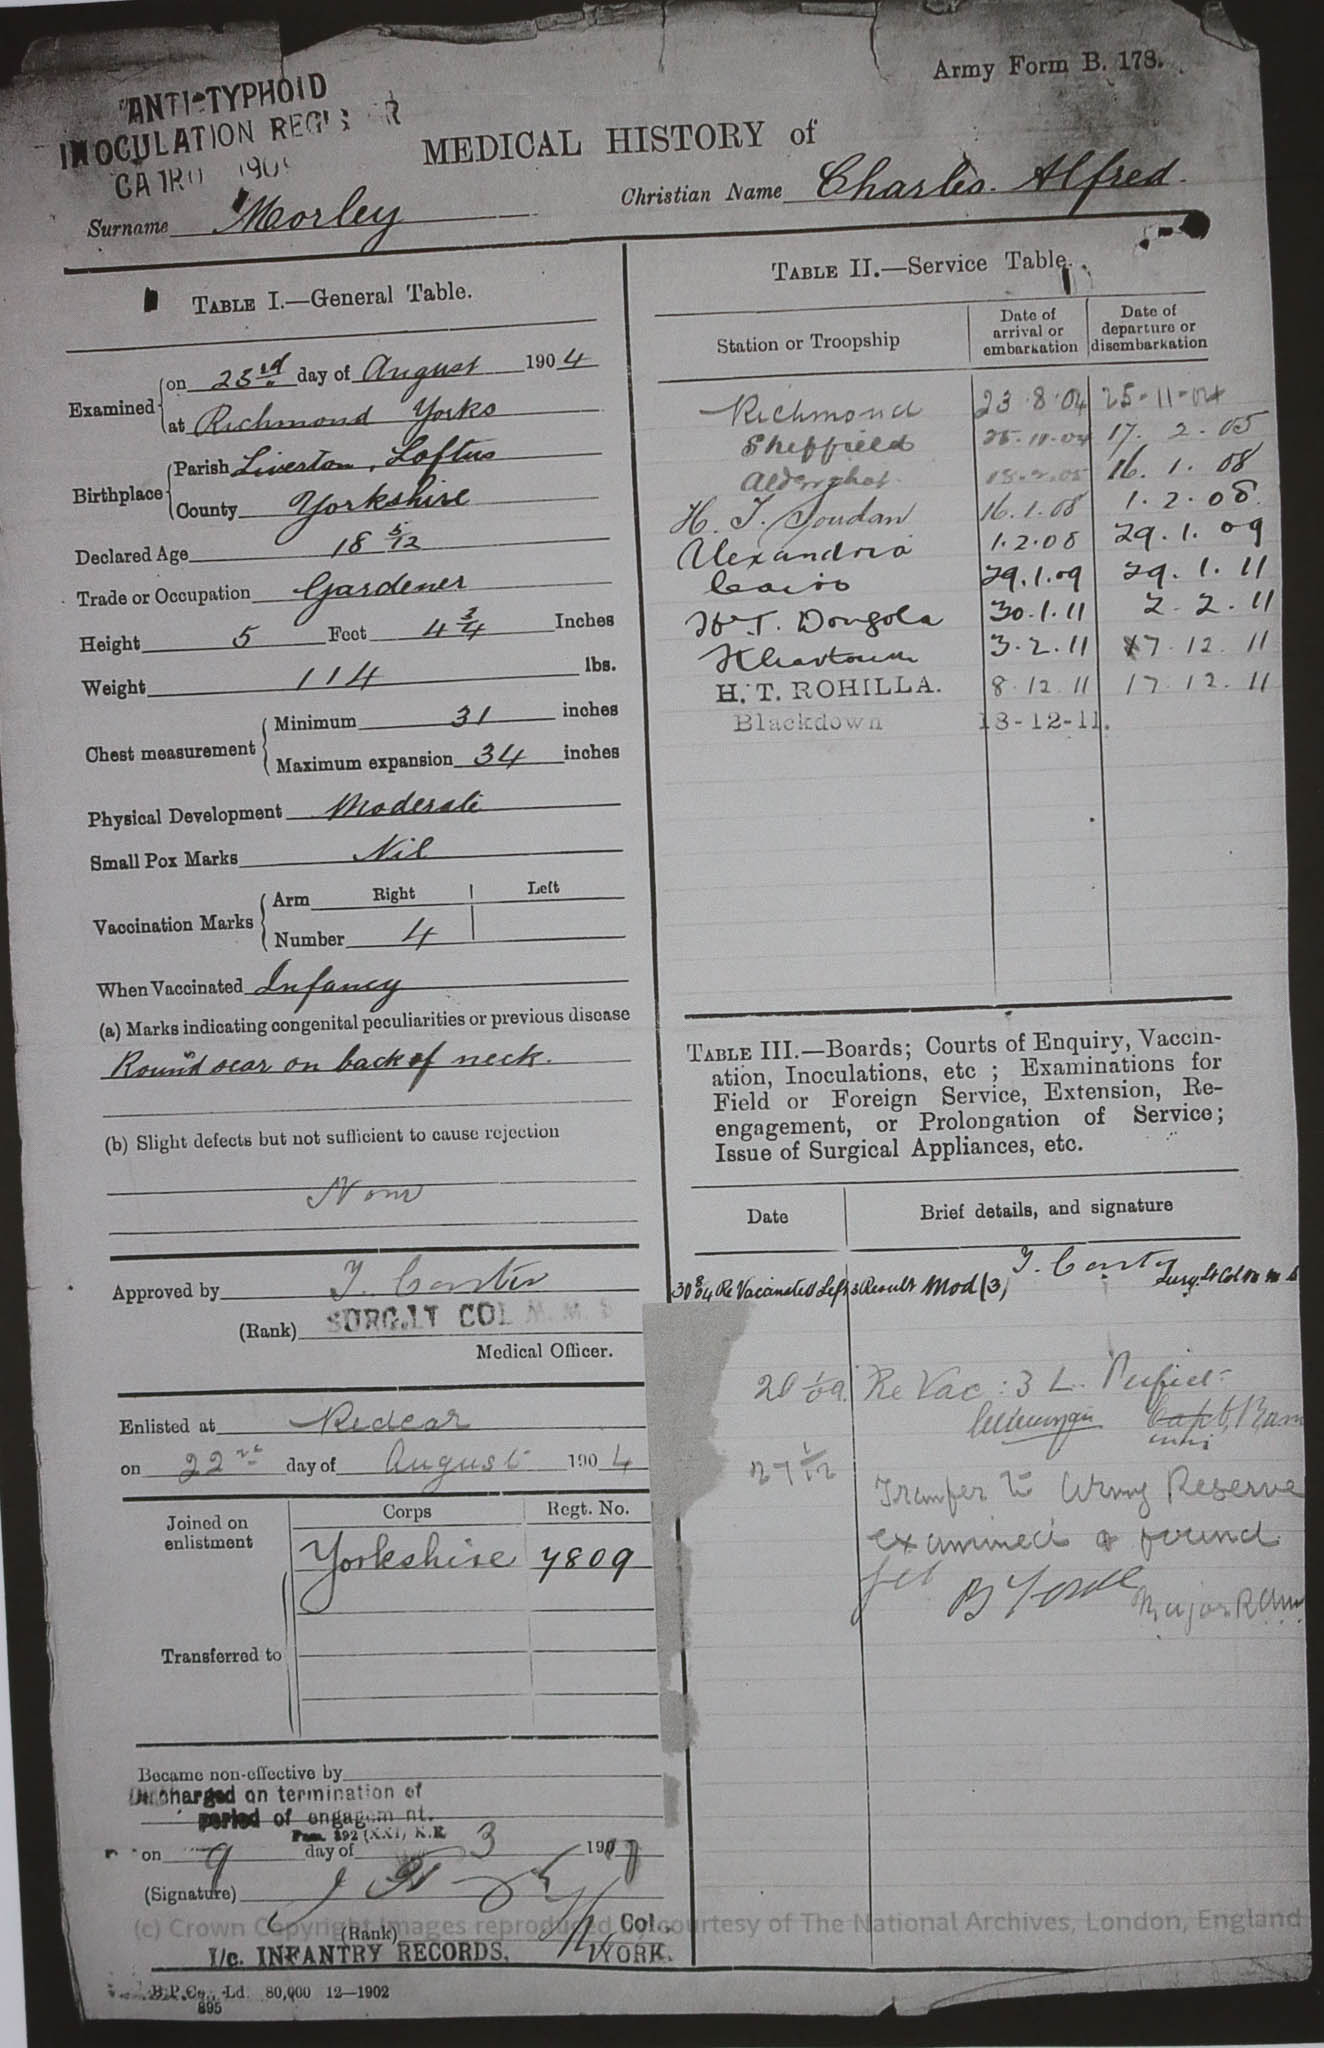 Army Form B. 178.
ANTI-TYPHOID
INOCULATION REGISTER
CAIRO 190
MEDICAL HISTORY of
Surname Morley
Christian Name Charles Alfred.
TABLE I.—General Table.
Examined on 23rd day of August 1904
at Richmond Yorks
Birthplace Parish Liverton, Loftus
County Yorkshire
Declared Age 18 5/12
Trade or Occupation Gardener
Height 5 Feet 4 3/4 Inches
Weight 114 lbs.
Chest measurement Minimum 31 inches
Maximum expansion 34 inches
Physical Development Moderate
Small Pox Marks Nil
Vaccination Marks Arm Right Left
Number 4
When Vaccinated Infancy
(a) Marks indicating congenital peculiarities or previous disease
Round scar on back of neck.
(b) Slight defects but not sufficient to cause rejection
None
Approved by
(Rank) SURG. LT COL M. M. S
Medical Officer.
Enlisted at Redcar
on 22nd day of August 1904
Joined on enlistment
Corps Regt. No.
Yorkshire 7809
Transferred to
Became non-effective by
Discharged on termination of
period of engagem nt.
Para. 392 (XXI) K.R.
on 9 day of 3 191
(Signature)
(Rank) Col.
I/c. INFANTRY RECORDS, YORK.
B.P.Co., Ld. 80,000 12—1902
895
TABLE II.—Service Table.
Station or Troopship
Date of arrival or embarkation
Date of departure or disembarkation
Richmond 23.8.04 25-11-04
Sheffield 25.11.04 17. 2. 05
Aldershot 18.2.05 16. 1. 08
H. T. Soudan 16.1.08 1. 2. 08.
Alexandria 1.2.08 29. 1. 09
Cairo 29.1.09 29. 1. 11
H.T. Dongola 30.1.11 2. 2. 11
Khartoum 3.2.11 7. 12. 11
H. T. ROHILLA. 8.12.11 17 12. 11
Blackdown 18-12-11.
TABLE III.—Boards; Courts of Enquiry, Vaccin-
ation, Inoculations, etc ; Examinations for
Field or Foreign Service, Extension, Re-
engagement, or Prolongation of Service;
Issue of Surgical Appliances, etc.
Date Brief details, and signature
30 8/04 Re Vaccinated Left 3 Result Mod (3)
Surg. Lt Col M M S
20 1/09. Re Vac : 3 L. Perfect
Capt, Ram
27 1/12 Transfer to Army Reserve
examined & found
fit
Major RAM
(c) Crown Copyright Images reproduced by courtesy of The National Archives, London, England